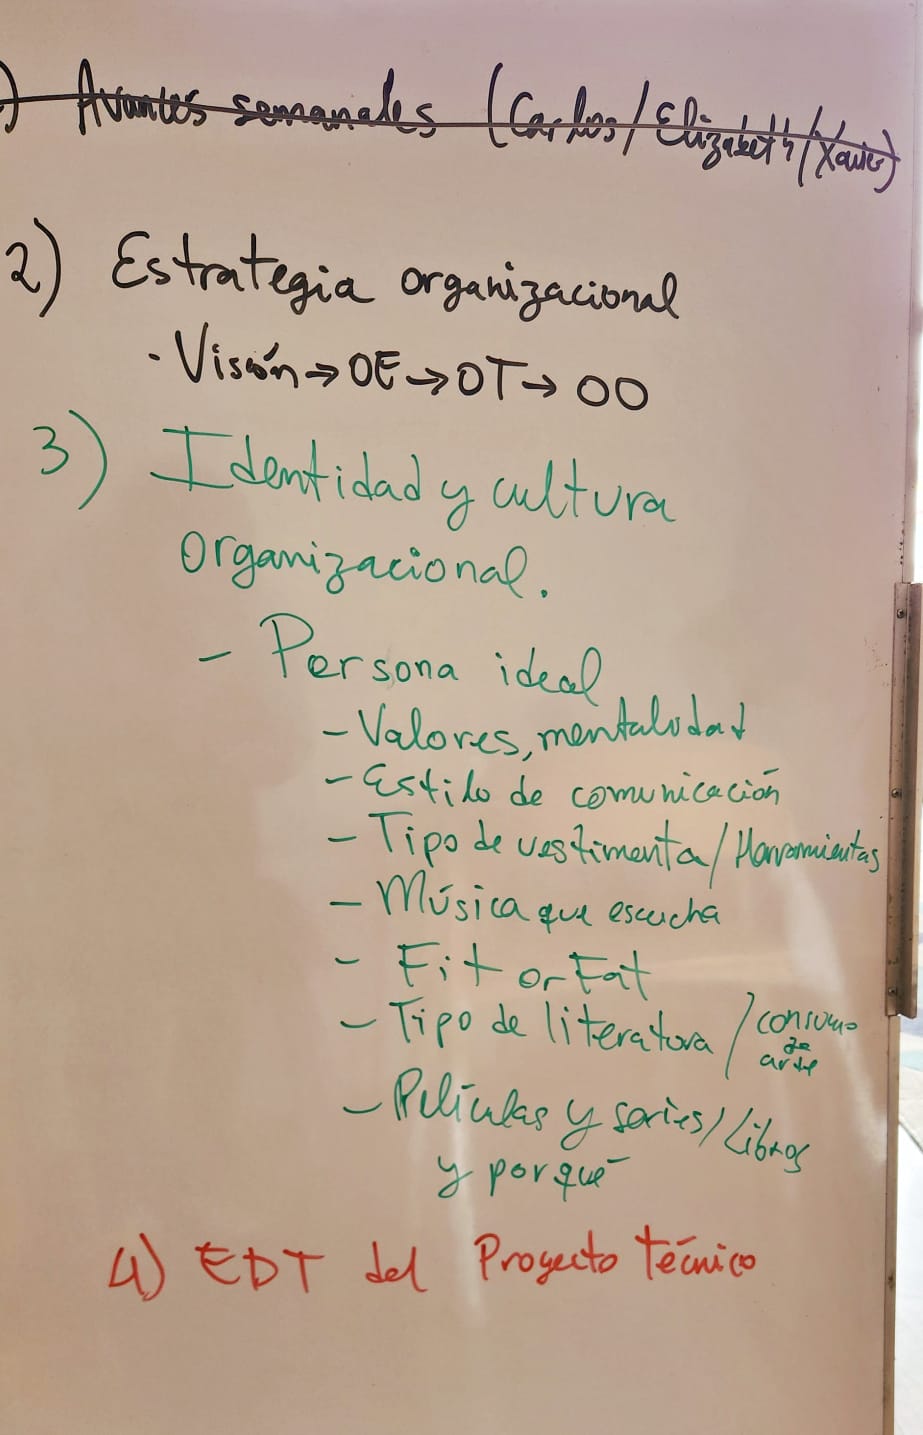 ) Avances semanales (Carlos/Elizabeth/Xavier)
2) Estrategia organizacional
· Visión → OE → OT → OO
3) Identidad y cultura
organizacional.
- Persona ideal
- Valores, mentalidad
- Estilo de comunicación
- Tipo de vestimenta / Herramientas
- Música que escucha
- Fit or Fat
- Tipo de literatura / consumo
de
arte
- Películas y series / Libros
y porqué
4) EDT del Proyecto técnico